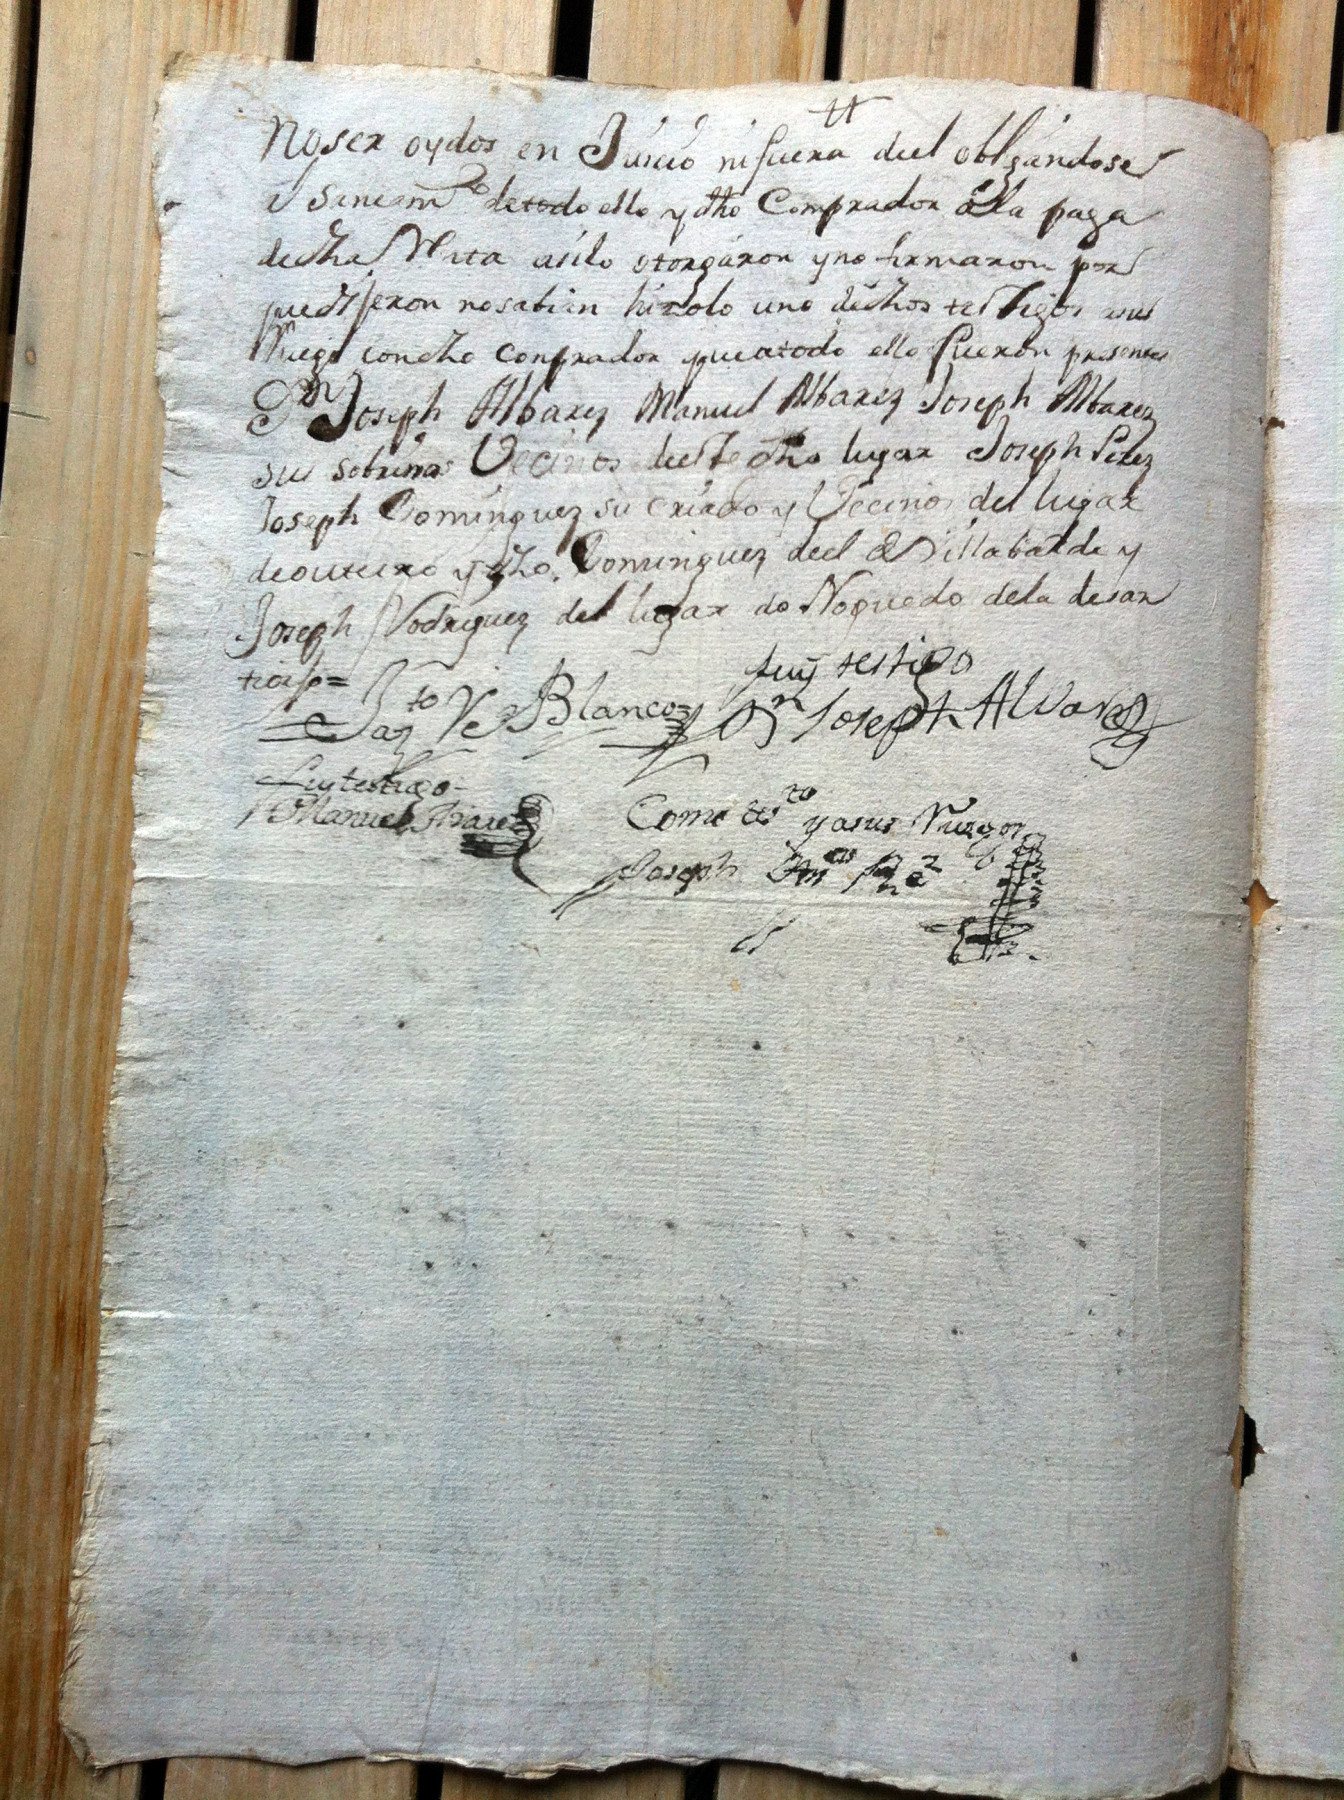 Noser oydos en Juicio nifuera deel oblgandose
a Saneamto detodo ello ydho Comprador ála paga
dedha Renta asilo otorgáron yno firmaron por
quedijeron nosabian hizolo uno dedhos testigos asus
Ruego condho Comprador queatodo ello fueron presentes
Dn Joseph Albarez Manuel Albarez Joseph Albarez
sus sobrinos Vecinos deeste dho lugar Joseph Perez
Joseph Dominguez su criado y Vecinos del lugar
deouteiro y dho Dominguez deel de Villabalde y
Joseph Rodriguez del lugar do Noguedo dela desan
tirso=
Jazto Ve Blanco
fuy testigo
Dn Joseph Alvarez
Fuy testigo
Manuel Albarez
Como testo yasus Ruegos
Joseph